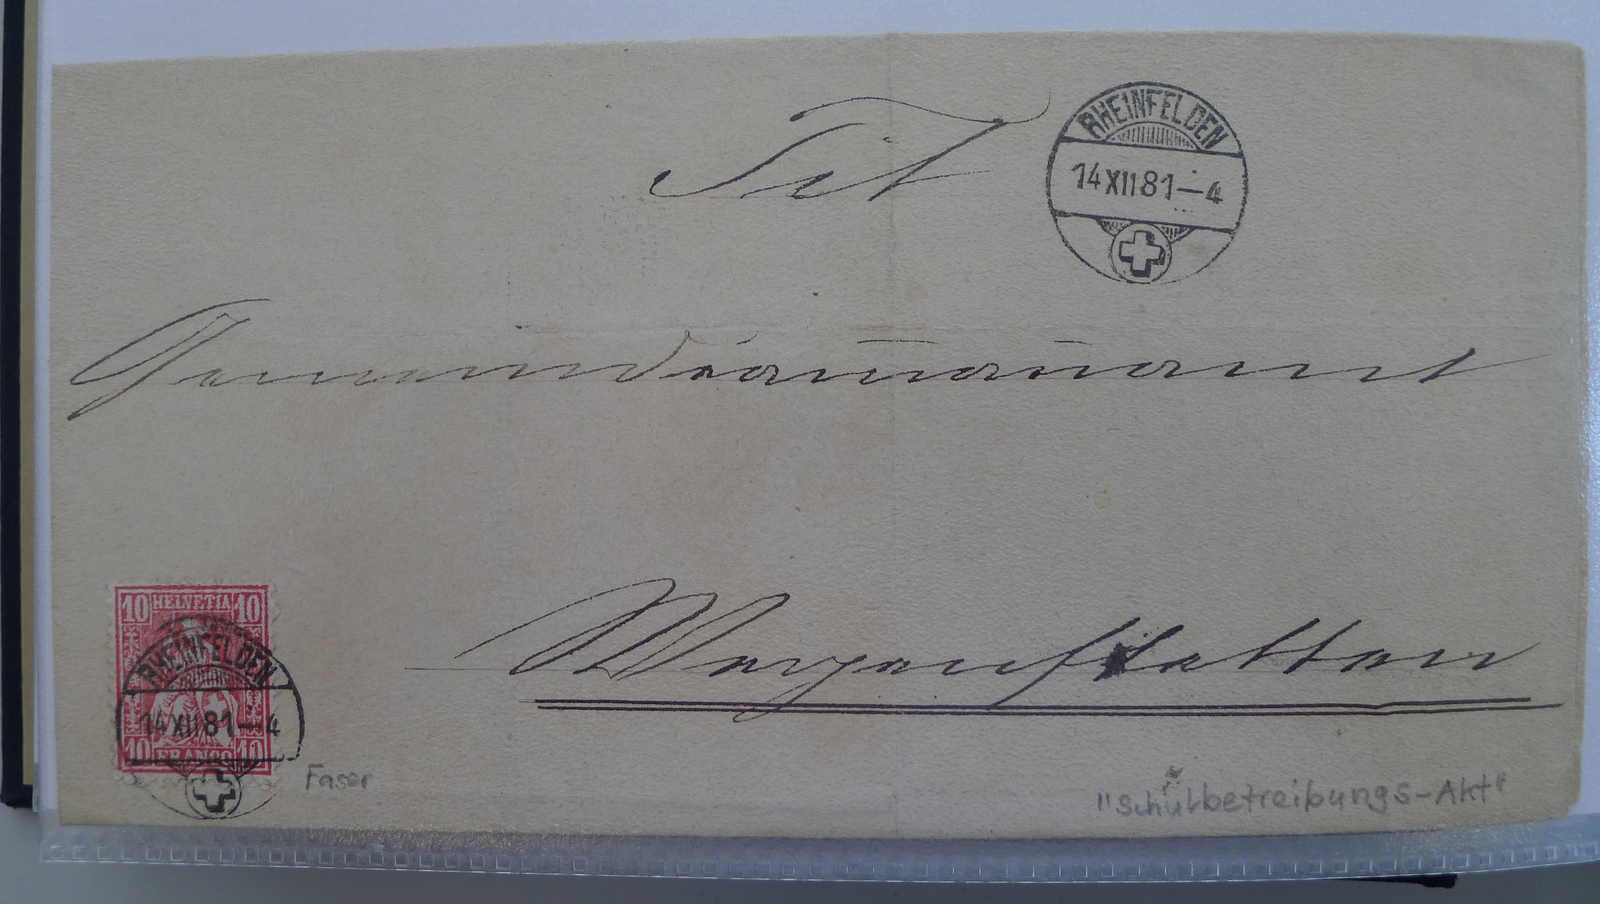 Tit
RHEINFELDEN
14 XII 81—4
Gemeindeammannamt
10 HELVETIA 10
RHEINFELDEN
14 XII 81—4
10 FRANCO 10
Faser
"Schulbetreibungs-Akt"